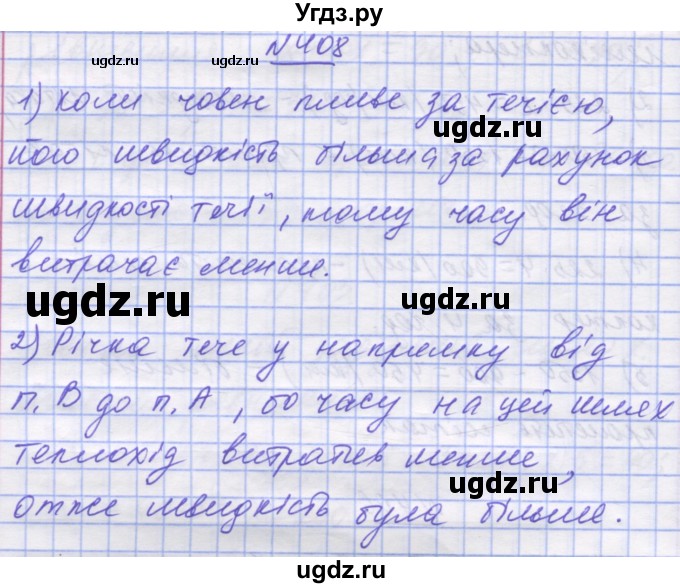 Угдз.ру
№408
ugdz.ru ugdz.ru
1) Коли човен пливе за течією,
ugdz.ru
його швидкість більша за рахунок
ugdz.ru ugdz.ru
швидкості течії, тому часу він
витрачає менше.
ugdz.ru ugdz.ru
2) Річка тече у напрямку від
ugdz.ru
п. В до п. А, бо часу на цей шлях
ugdz.ru
теплохід витратив менше,
ugdz.ru
отже швидкість була більше.
ugdz.ru ugdz.ru